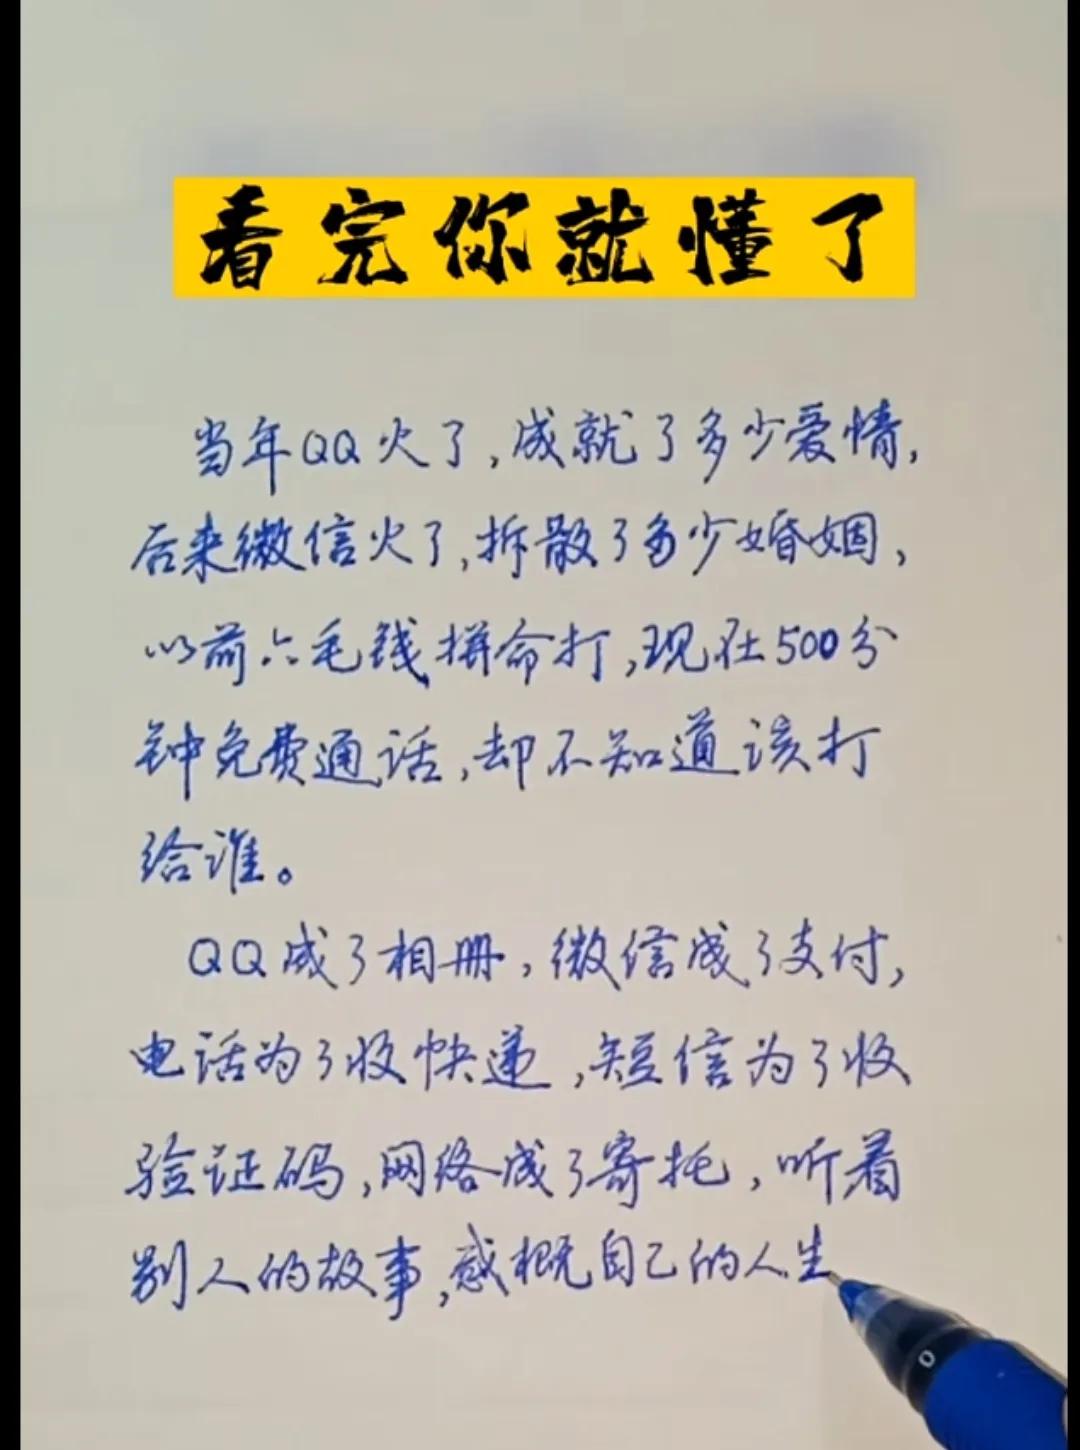 看完你就懂了
当年QQ火了,成就了多少爱情,
后来微信火了,拆散了多少婚姻,
以前六毛钱拼命打,现在500分
钟免费通话,却不知道该打
给谁。
QQ成了相册,微信成了支付,
电话为了收快递,短信为了收
验证码,网络成了寄托,听着
别人的故事,感概自己的人生
0